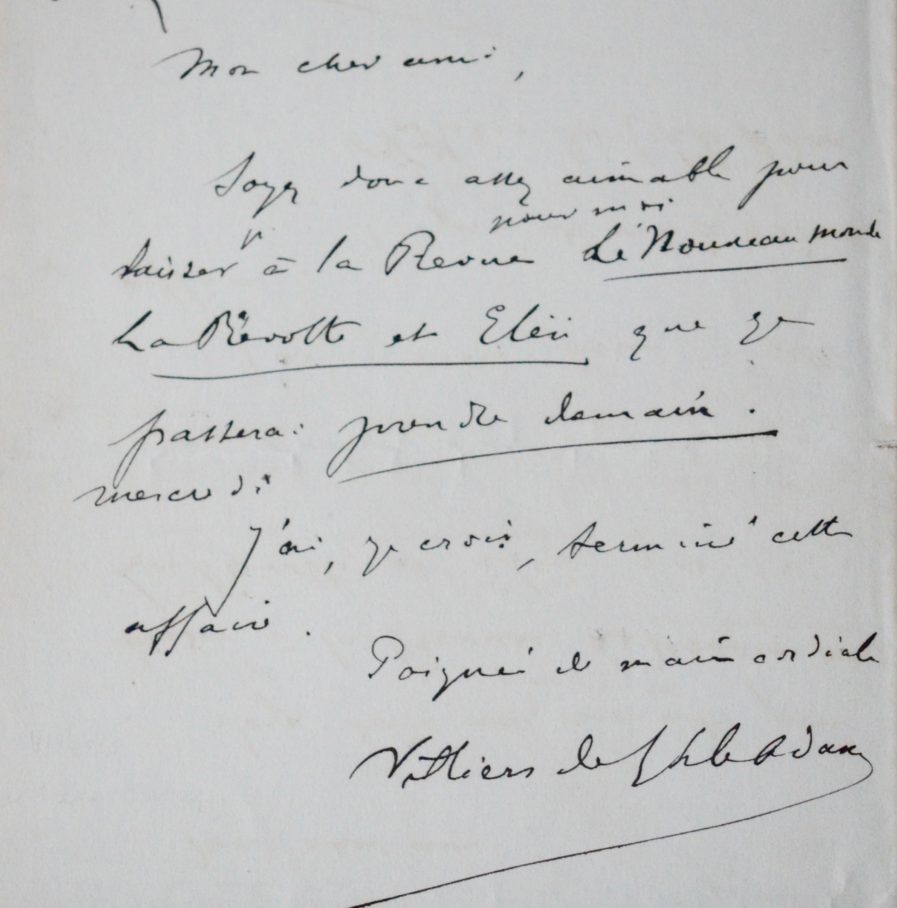 Mon cher ami,
Soyez donc assez aimable pour
pour moi
laisser à la Revue Le Nouveau monde
La Révolte et Elën que je
passerai prendre demain.
mercredi
J'ai, je crois, terminé cette
affaire.
Poignée de main cordiale
Villiers de l'Isle Adam